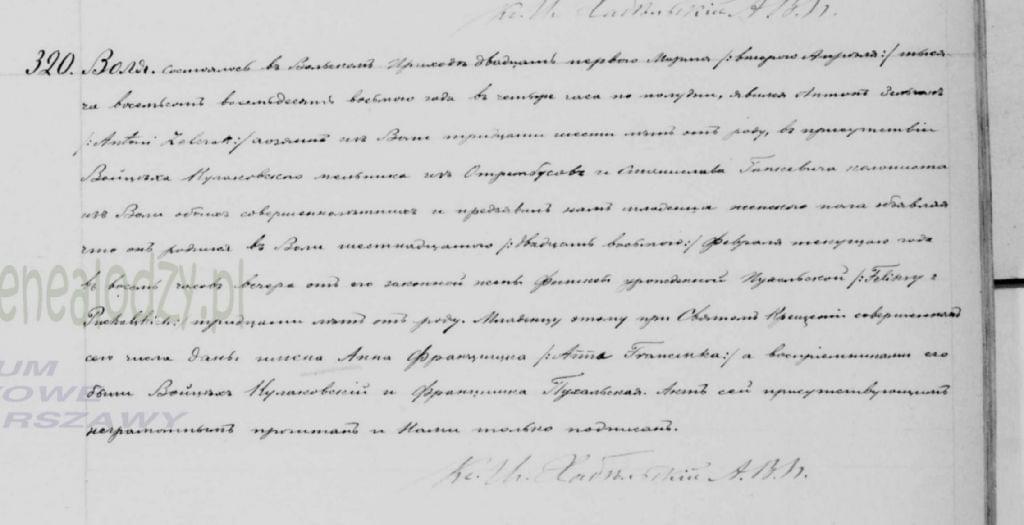 Кс. И. Хабѣльскій А.В.П.
320. Воля. Состоялось въ Вольскомъ Приходѣ двадцать перваго Марта /:втораго Апрѣля:/ тыся-
ча восемьсотъ восемьдесятъ восьмого года въ четыре часа по полудни, явился Антонъ
/:Antoni Zelczak:/ хозяинъ изъ Воли тридцати шести лѣтъ отъ роду, въ присутствіи
Войцѣха Кулаковскаго мельника изъ Отрембусовъ и Станислава Ганкевича колониста
изъ Воли обоихъ совершеннолѣтнихъ и предъявилъ намъ младенца женскаго пола объявляя
что онъ родился въ Воли шестнадцатого /:двадцать восьмого:/ Февраля текущаго года
въ восемь часовъ вечера отъ его законной жены Феликсы урожденной Пухальской /:Feliksy z
Puchalskich:/ тридцати лѣтъ отъ роду. Младенцу этому при Святомъ Крещеніи совершенномъ
сего числа даны имена Анна Францишка /:Anna Franciszka:/ а воспріемниками его
были Войцѣхъ Кулаковскій и Францишка Пухальская. Актъ сей присутствующимъ
неграмотнымъ прочитанъ и Нами только подписанъ.
Кс. И. Хабѣльскій А.В.П.
enealodzy.pl
UM
KOWE
RSZAWY